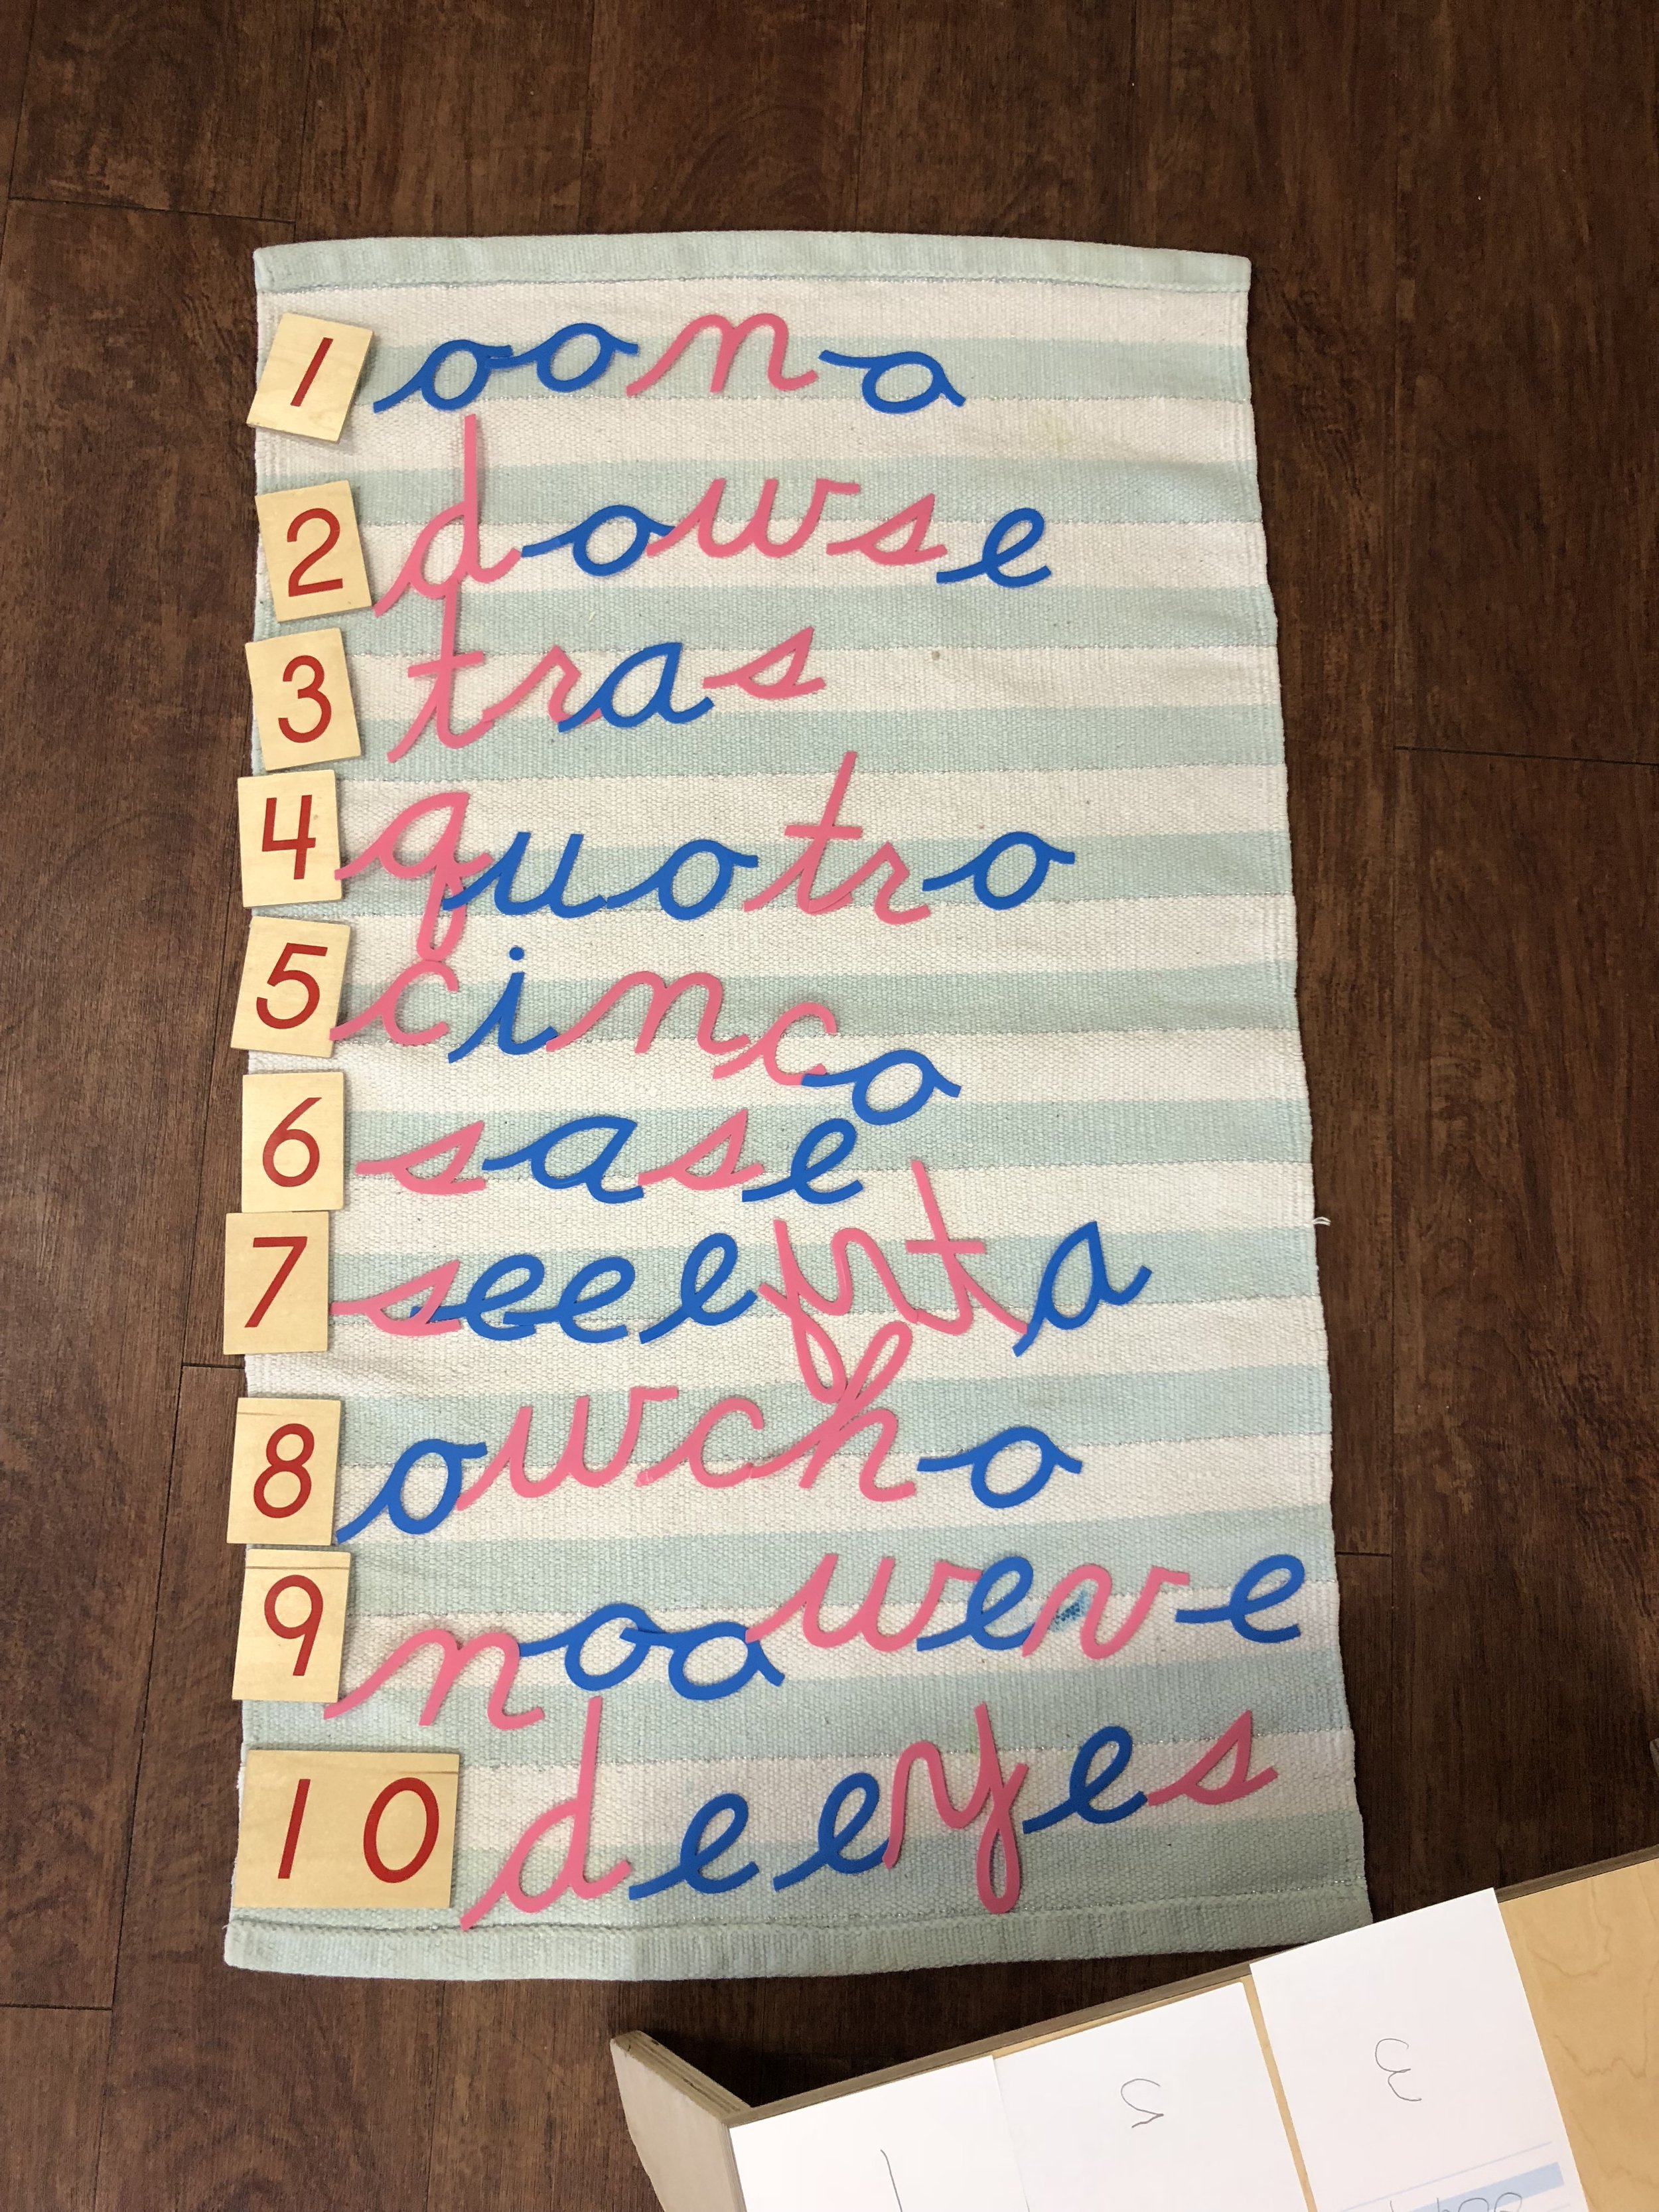 1 oono
2 dowse
3 tras
4 quotro
5 cinco
6 sase
7 seeepta
8 owcho
9 nooweve
10 deeyes